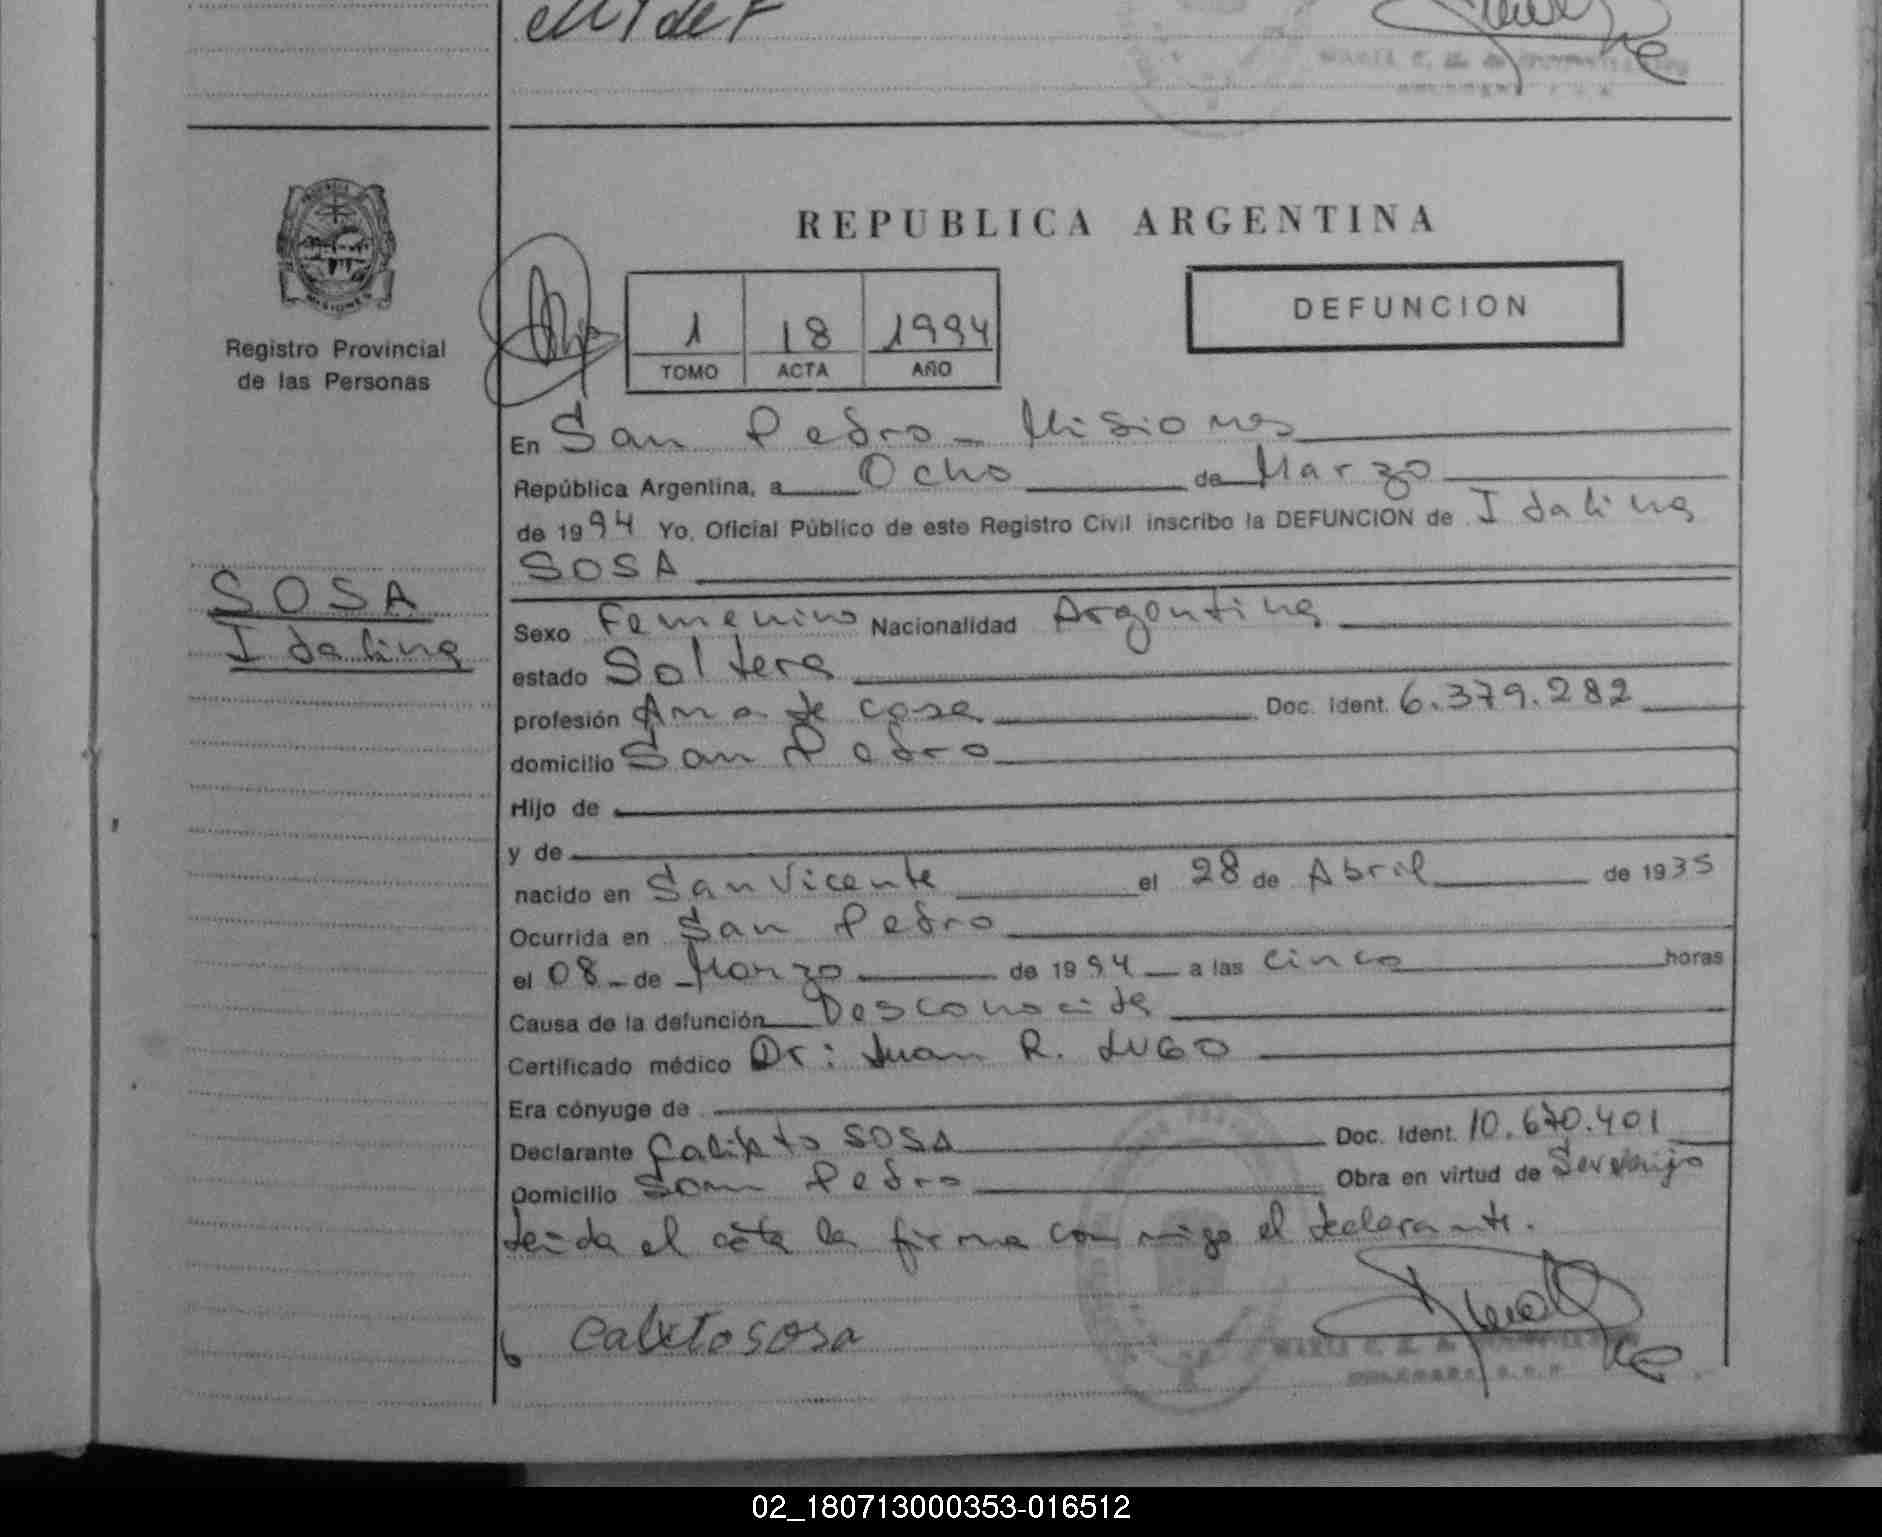 REPUBLICA ARGENTINA
Registro Provincial
de las Personas
1 18 1994
TOMO ACTA AÑO
DEFUNCION
En San Pedro - Misiones
República Argentina, a Ocho de Marzo
de 1994 Yo, Oficial Público de este Registro Civil inscribo la DEFUNCION de Idalina
SOSA
SOSA
Idalina
Sexo Femenino Nacionalidad Argentina
estado Soltera
profesión Ama de casa Doc. Ident. 6.379.282
domicilio San Pedro
Hijo de
y de
nacido en San Vicente el 28 de Abril de 1935
Ocurrida en San Pedro
el 08 - de Marzo de 1994 a las cinco horas
Causa de la defunción Desconocida
Certificado médico Dr: Juan R. LUGO
Era cónyuge de
Declarante Calixto SOSA Doc. Ident. 10.670.401
Domicilio San Pedro Obra en virtud de
Leida el acta la firma conmigo el declarante.
Calixto sosa
02_180713000353-016512